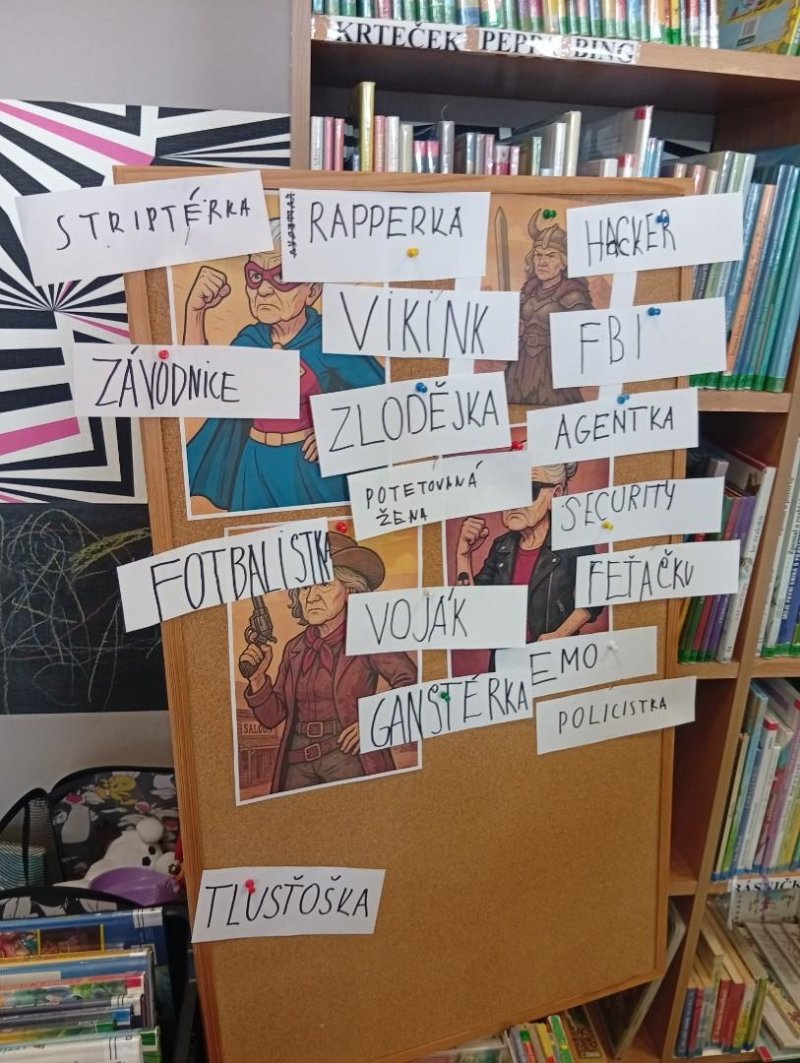 KRTEČEK PEPPA BING
STRIPTÉRKA
RAPPERKA
HACKER
VIKÍNK
FBI
ZÁVODNICE
ZLODĚJKA
AGENTKA
POTETOVANÁ
ŽENA
SECURITY
FOTBALISTKA
FEŤÁČKU
VOJÁK
EMO
GANŠTÉRKA
POLICÍSTKA
SALOON
TLUSŤOŠKA